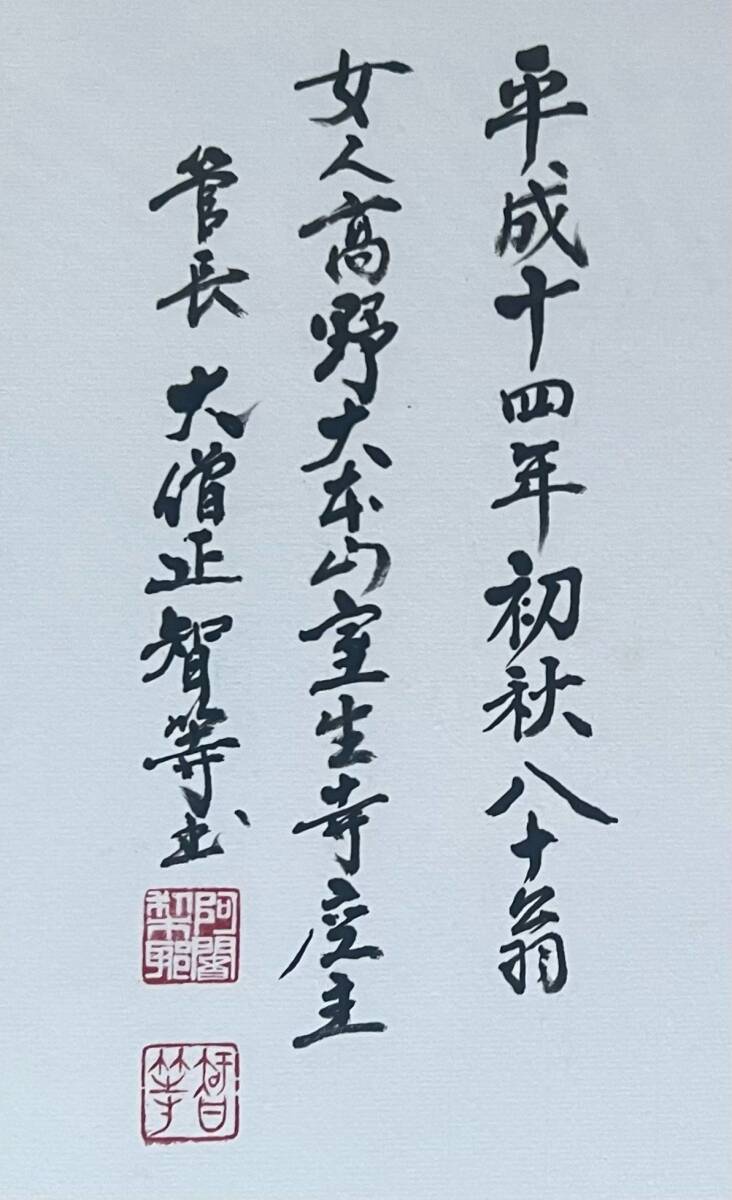 平成十四年初秋八十翁
女人高野大本山室生寺座主
管長 大僧正智等書
阿闍梨耶
智等